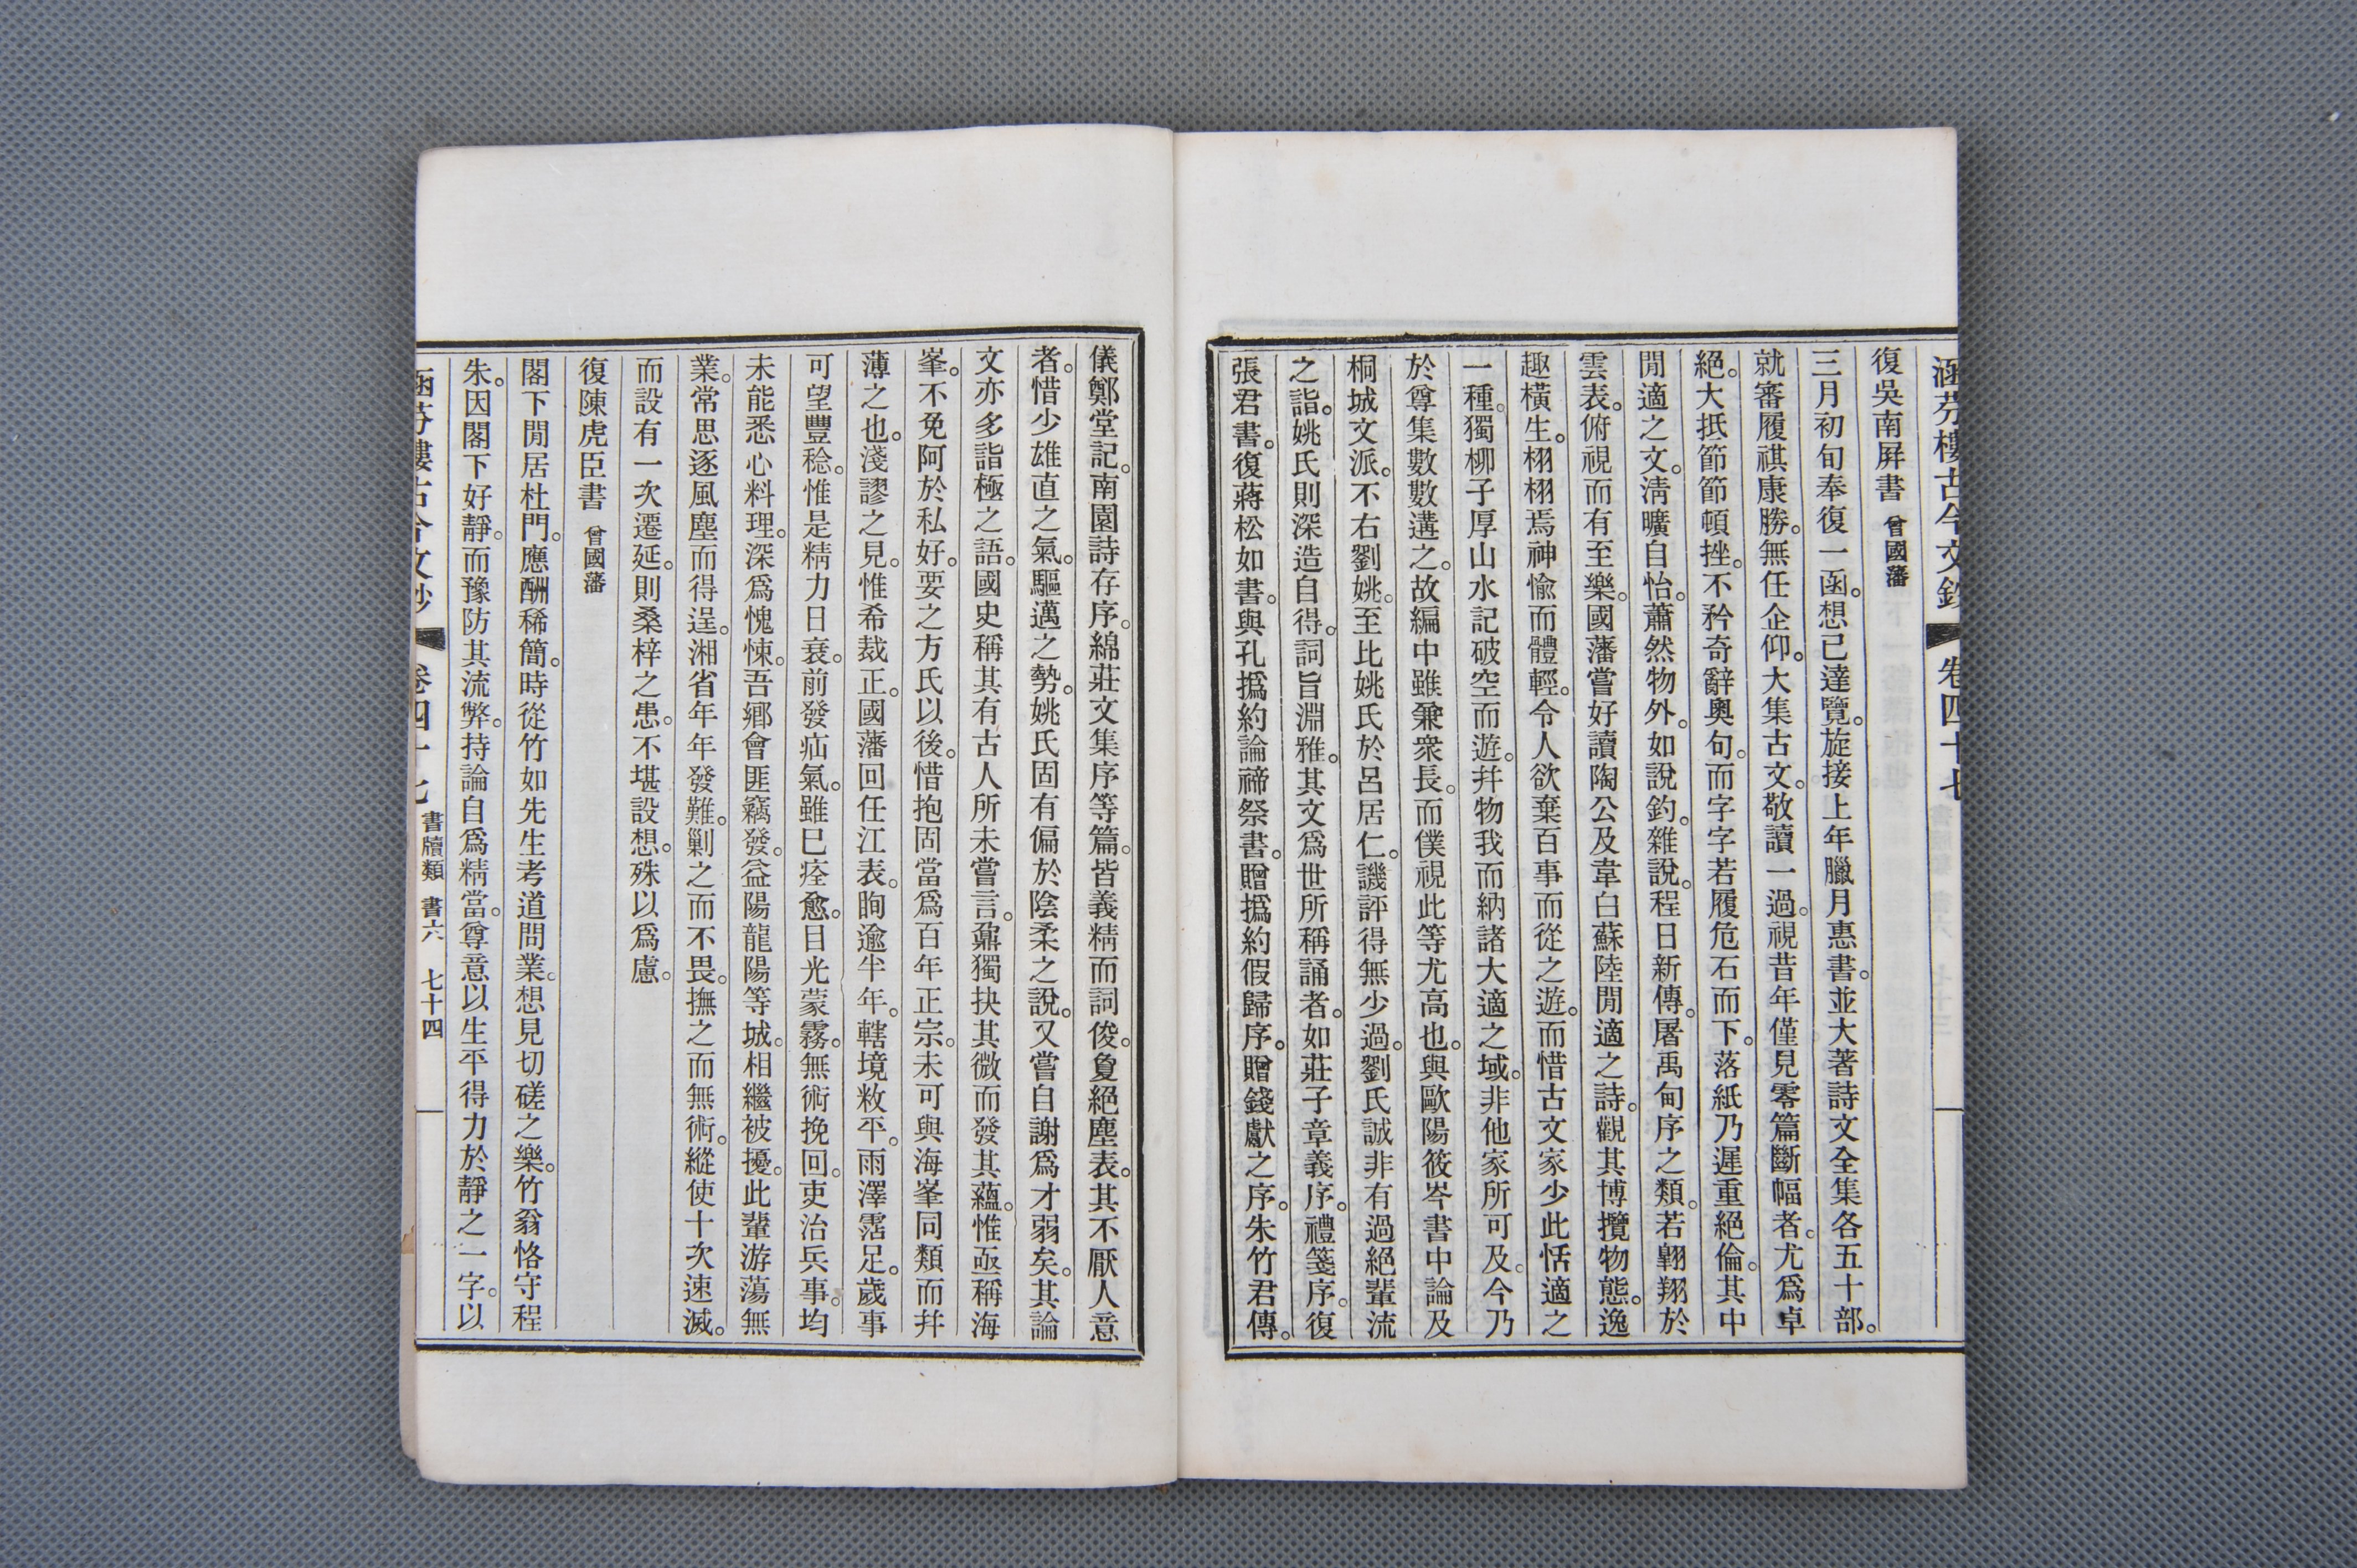 涵芬樓古今文鈔 卷四十七
復吳南屏書 曾國藩
三月初旬奉復一函。想已達覽。旋接上年臘月惠書。並大著詩文全集各五十部。
就審履祺康勝。無任企仰。大集古文。敬讀一過。視昔年僅見零篇斷幅者。尤爲卓
絕。大抵節節頓挫。不矜奇辭奧句。而字字若履危石而下。落紙乃遲重絕倫。其中
閒適之文。淸曠自怡。蕭然物外。如說釣。雜說。程日新傳。屠禹甸序之類。若翺翔於
雲表。俯視而有至樂。國藩嘗好讀陶公及韋白蘇陸閒適之詩。觀其博攬物態。逸
趣橫生。栩栩焉神愉而體輕。令人欲棄百事而從之遊。而惜古文家少此恬適之
一種。獨柳子厚山水記破空而遊。幷物我而納諸大適之域。非他家所可及。今乃
於尊集數數遘之。故編中雖兼衆長。而僕視此等尤高也。與歐陽筱岑書中論及
桐城文派。不右劉姚。至比姚氏於呂居仁。譏評得無少過。劉氏誠非有過絕輩流
之詣。姚氏則深造自得。詞旨淵雅。其文爲世所稱誦者。如莊子章義序。禮箋序。復
張君書。復蔣松如書。與孔撝約論禘祭書。贈撝約假歸序。贈錢獻之序。朱竹君傳。
儀鄭堂記。南園詩存序。綿莊文集序等篇。皆義精而詞俊。敻絕塵表。其不厭人意
者。惜少雄直之氣。驅邁之勢。姚氏固有偏於陰柔之說。又嘗自謝爲才弱矣。其論
文亦多詣極之語。國史稱其有古人所未嘗言。鼐獨抉其微而發其蘊。惟亟稱海
峯。不免阿於私好。要之方氏以後。惜抱固當爲百年正宗。未可與海峯同類而幷
薄之也。淺謬之見。惟希裁正。國藩回任江表。眴逾半年。轄境敉平。雨澤霑足。歲事
可望豐稔。惟是精力日衰。前發疝氣。雖已痊愈。目光蒙霧。無術挽回。吏治兵事。均
未能悉心料理。深爲愧悚。吾鄉會匪竊發。益陽龍陽等城。相繼被擾。此輩游蕩無
業。常思逐風塵而得逞。湘省年年發難。剿之而不畏。撫之而無術。縱使十次速滅。
而設有一次遷延。則桑梓之患。不堪設想。殊以爲慮。
復陳虎臣書 曾國藩
閣下閒居杜門。應酬稀簡。時從竹如先生考道問業。想見切磋之樂。竹翁恪守程
朱。因閣下好靜。而豫防其流弊。持論自爲精當。尊意以生平得力於靜之一字。以
涵芬樓古今文鈔 卷四十七 書牘類 書六 七十四